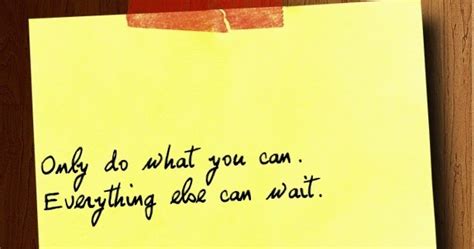 Only do what you can.
Everything else can wait.